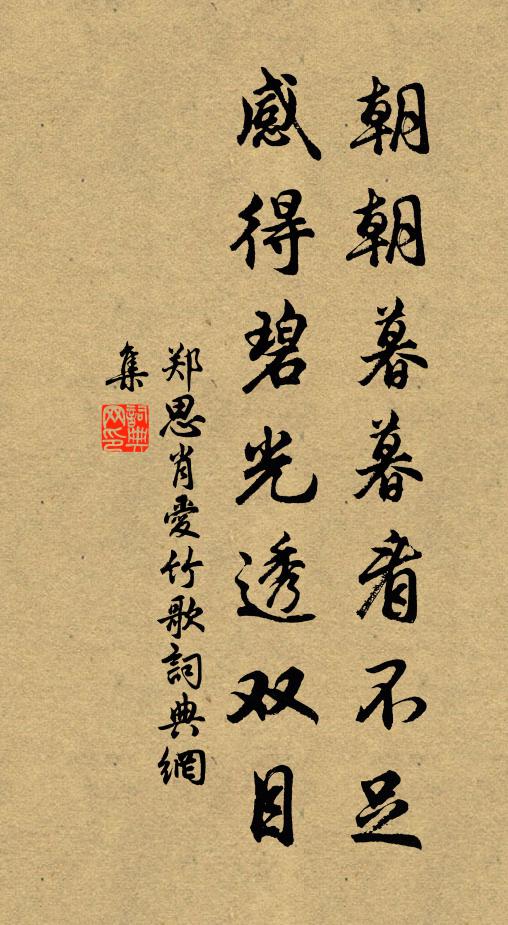 朝朝暮暮看不足
感得碧光透双目
郑思肖爱竹歌词典網
集
詞典
网印